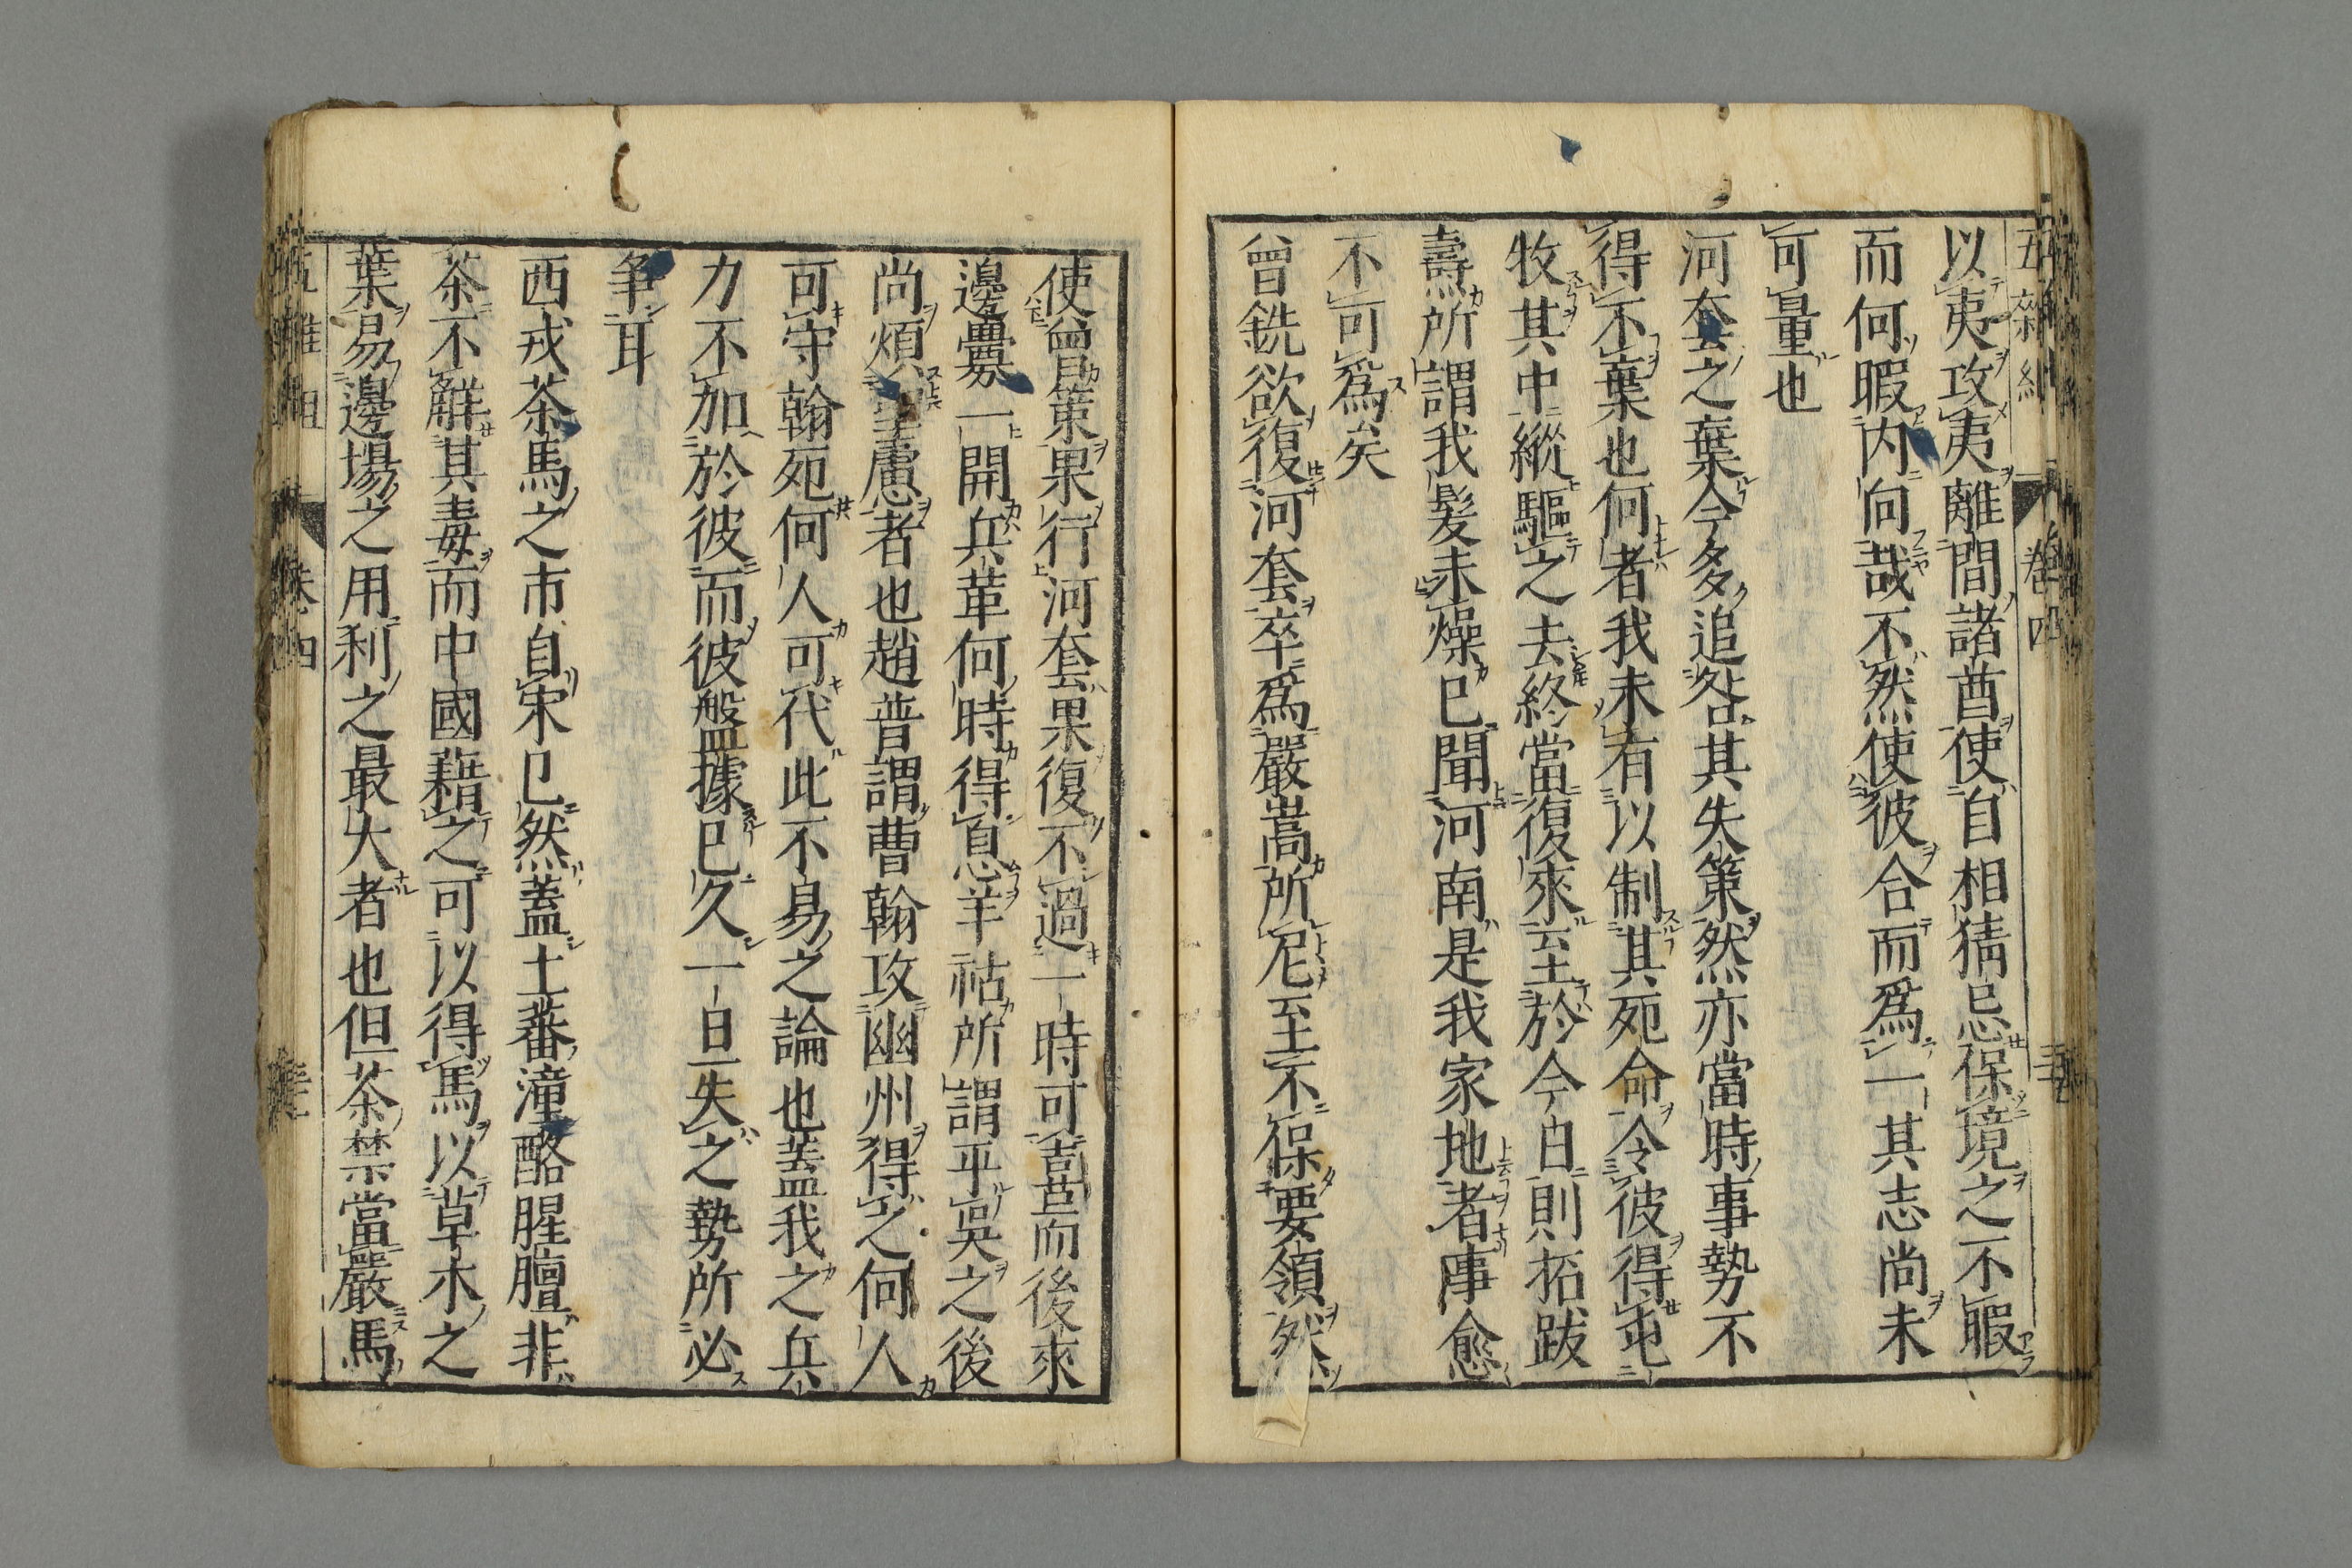 以夷攻夷離間諸酋使自相猜忌保境之不暇
而何暇内向哉不然使彼合而爲一其志尚未
可量也
河套之棄今多追咎其失策然亦當時事勢不
得不棄也何者我未有以制其死命令彼得屯
牧其中縱驅之去終當復來至於今日則拓跋
燾所謂我髮未燥已聞河南是我家地者事愈
不可爲矣
曾銑欲復河套卒爲嚴嵩所尼至不保要領然
使曾策果行河套果復不過一時可喜莒而後來
邊釁一開兵革何時得息羊祜所謂平吳之後
尚煩聖慮者也趙普謂曹翰攻幽州得之何人
可守翰死何人可代此不易之論也蓋我之兵
力不加於彼而彼盤據已久一旦失之勢所必
爭耳
西戎茶馬之市自宋已然蓋土蕃潼酪腥膻非
茶不解其毒而中國藉之可以得馬以草木之
葉易邊場之用利之最大者也但茶禁當嚴馬
卷四